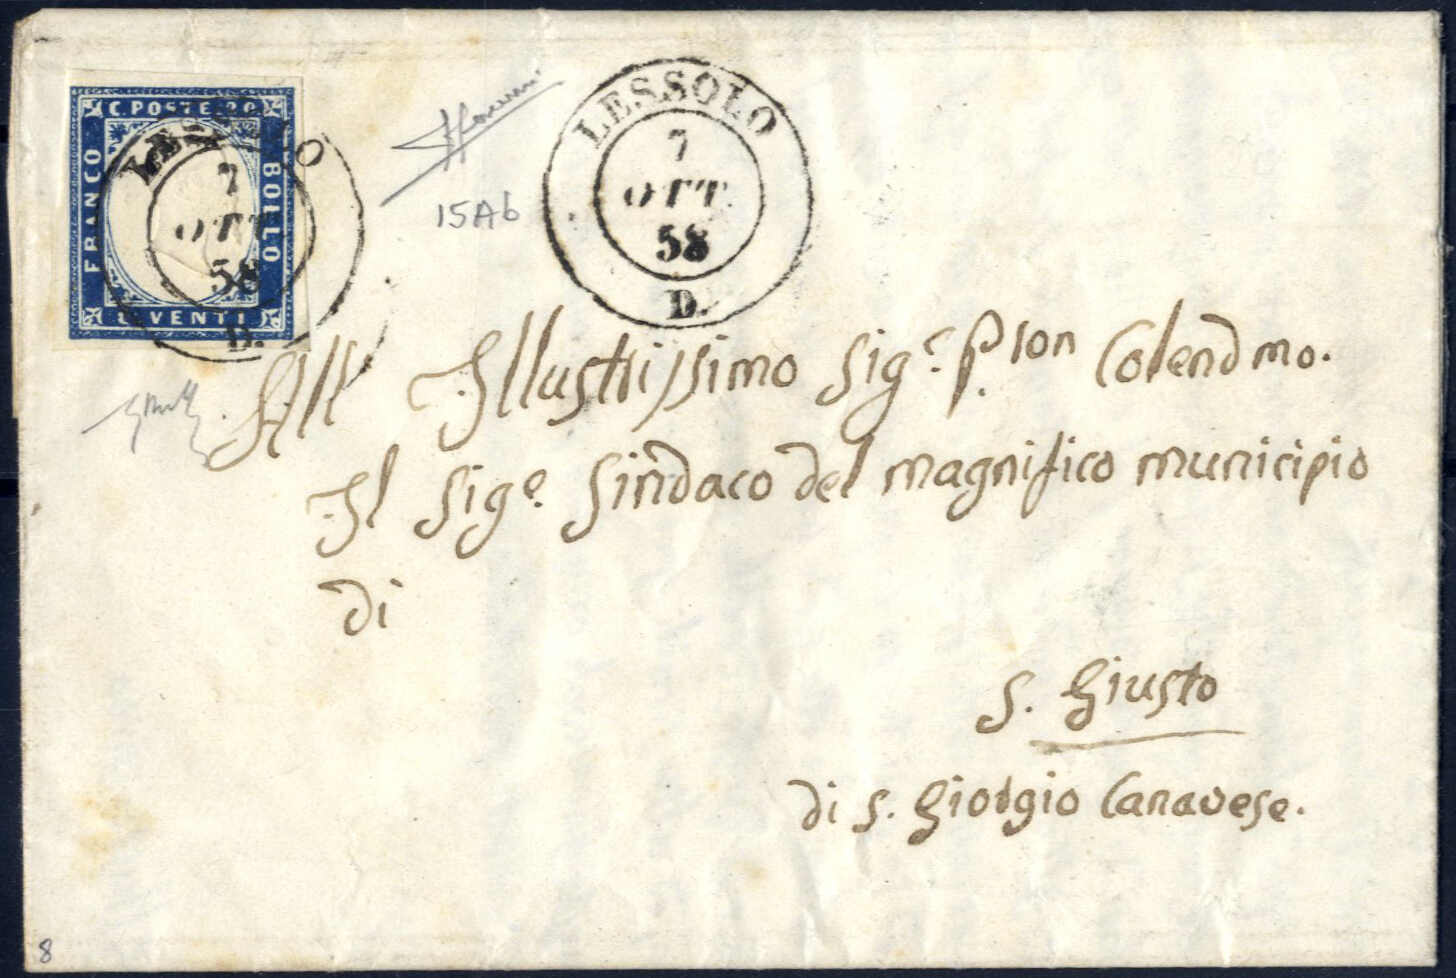 C. POSTE 20
FRANCO
BOLLO
C. VENTI
LESSOLO
7
OTT
58
D.
LESSOLO
7
OTT
58
D.
15Ab
All Illustrissimo Sig.r P.ron Colendmo.
Il Sig.e Sindaco del magnifico municipio
di
S. Giusto
di S. Giorgio Canavese.
8